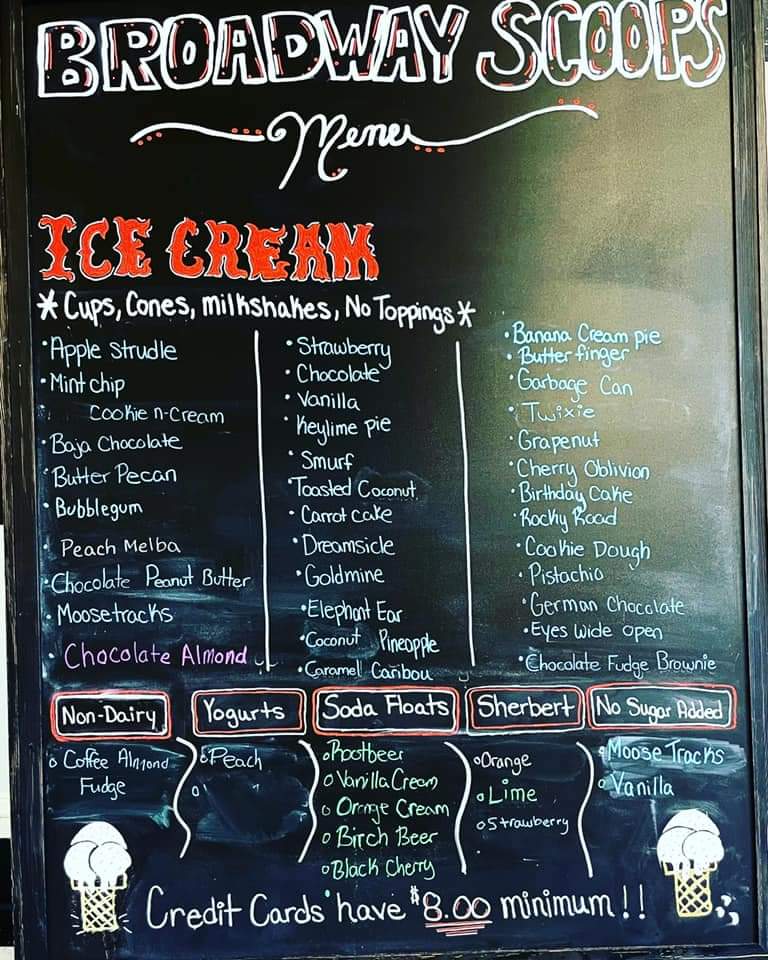 BROADWAY SCOOPS
Menu
ICE CREAM
*Cups, Cones, milkshakes, No Toppings*
• Apple Strudle
• Mint chip
Cookie n-Cream
• Baja Chocolate
• Butter Pecan
• Bubblegum
Peach Melba
• Chocolate Peanut Butter
• Moosetracks
• Chocolate Almond
• Strawberry
• Chocolate
• Vanilla
• Keylime pie
• Smurf
• Toasted Coconut
• Carrot cake
• Dreamsicle
• Goldmine
• Elephant Ear
• Coconut Pineapple
• Caramel Caribou
• Banana Cream pie
• Butterfinger
• Garbage Can
• Twixie
• Grapenut
• Cherry Oblivion
• Birthday Cake
• Rocky Road
• Cookie Dough
• Pistachio
• German Chocolate
• Eyes wide open
• Chocolate Fudge Brownie
Non-Dairy
o Coffee Almond
Fudge
Yogurts
o Peach
o
Soda Floats
o Rootbeer
o Vanilla Cream
o Orange Cream
o Birch Beer
o Black Cherry
Sherbert
o Orange
o Lime
o Strawberry
No Sugar Added
o Moose Tracks
o Vanilla
Credit Cards have $8.00 minimum!!